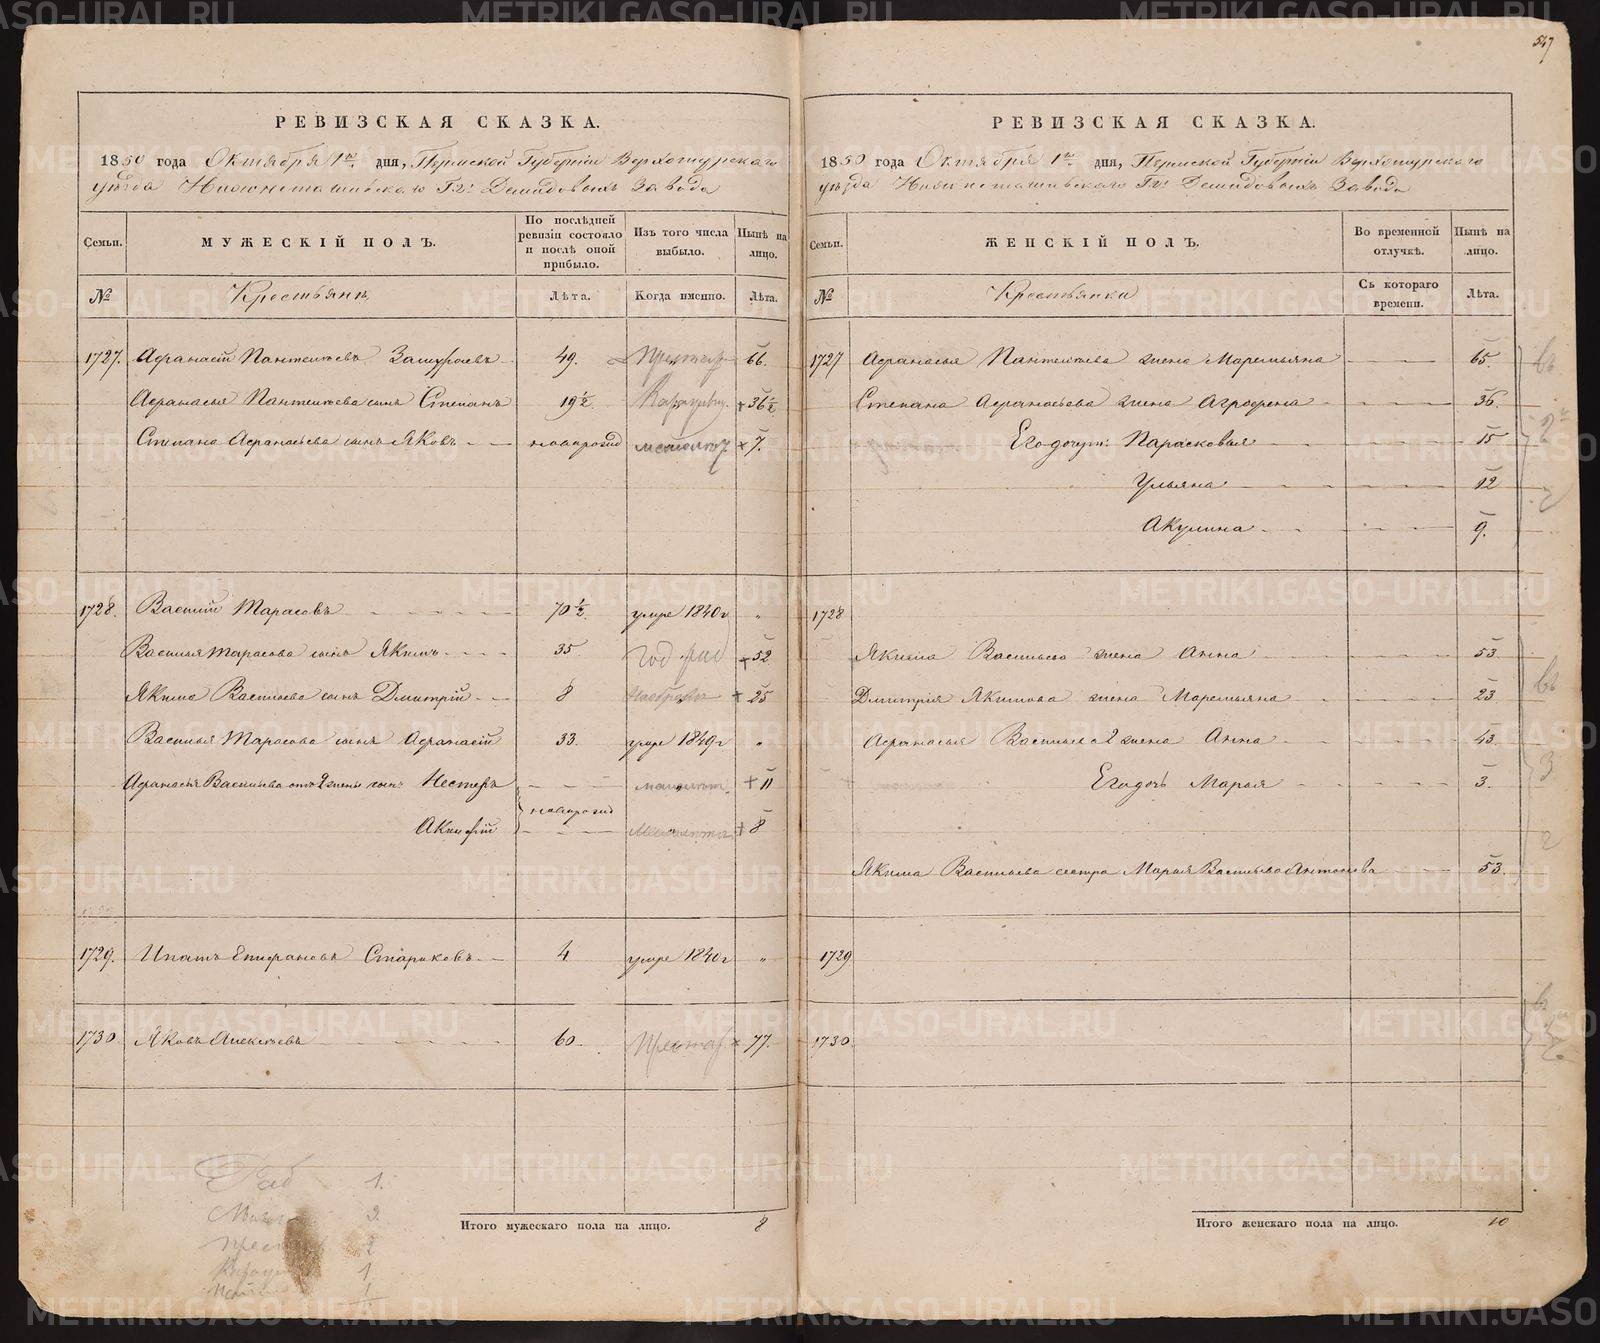 547
РЕВИЗСКАЯ СКАЗКА.
1850 года Октября 1го дня, Пермской Губернiи Верхотурского
уѣзда Нижнетагильского Гг. Демидовыхъ Завода
Семьи.
МУЖЕСКIЙ ПОЛЪ.
По послѣдней ревизiи состояло и послѣ оной прибыло.
Изъ того числа выбыло.
Нынѣ на лицо.
№
Крестьянъ
Лѣта.
Когда именно.
Лѣта.
1727. Афанасiй Пантелѣевъ 49. Престар 66.
Афанасья Пантелѣева сынъ Степанъ 19 1/2 + 36 1/2
Степана Афанасьева сынъ Яковъ новорожд малолѣт + 7.
1728. Василiй Тарасовъ 70 1/2. умре 1840г „
Василья Тарасова сынъ Якимъ 35. год. раб + 52
Якима Васильева сынъ Дмитрiй 8 + 25
Василья Тарасова сынъ Афанасiй 33. умре 1849г „
Афанасья Васильева отъ 2 жены сынъ Нестеръ малолѣт. + 11
новорожд
Акинфiй малолѣт + 8
1729. Ипатъ Епифановъ Стариковъ 4 умре 1840г „
1730. Яковъ Алексѣевъ 60. Престар × 77.
Итого мужескаго пола на лицо. 8
Раб 1.
Малол 3.
Прест 2
1
1
РЕВИЗСКАЯ СКАЗКА.
1850 года Октября 1го дня, Пермской Губернiи Верхотурского
уѣзда Нижнетагильского Гг. Демидовыхъ Завода
Семьи.
ЖЕНСКIЙ ПОЛЪ.
Во временной отлучкѣ.
Нынѣ на лицо.
№
Крестьянки
Съ котораго времени.
Лѣта.
1727 Афанасья Пантелѣева жена Маремьяна 65.
Степана Афанасьева жена Агрофена 36.
Его дочери: Парасковья 15
Ульяна 12
Акулина 9.
1728
Якима Васильева жена Анна 53
Дмитрiя Якимова жена Маремьяна 23
Афанасья Васильева 2 жена Анна 43
Его дочь Марья 3.
Якима Васильева сестра Марья Васильева Антонова 53.
1729
1730.
Итого женскаго пола на лицо. 10
METRIKI.GASO-URAL.RU